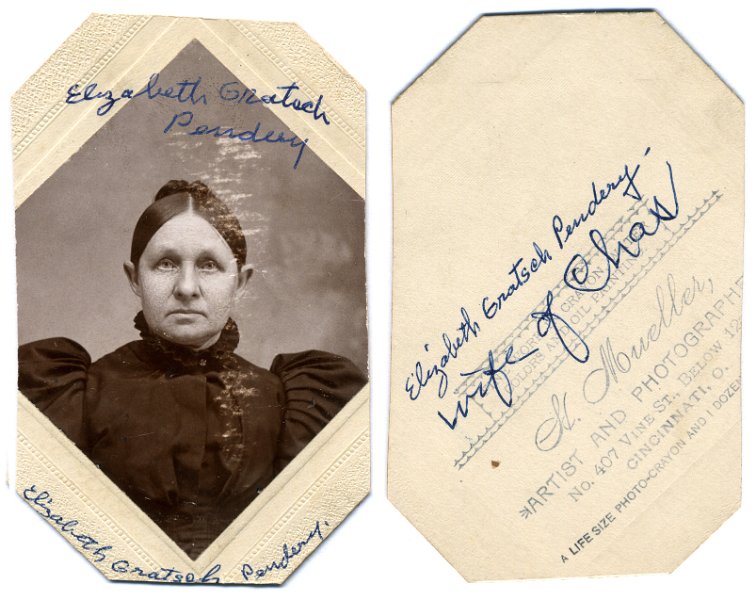 Elizabeth Gratsch
Pendery
Elizabeth Gratsch Pendery.
Elizabeth Gratsch Pendery.
wife of Chas
CRAYON
AND OIL PAINTING
N. Mueller,
ARTIST AND PHOTOGRAPHE
No. 407 VINE ST., BELOW 12
CINCINNATI, O.
A LIFE SIZE PHOTO-CRAYON AND 1 DOZEN